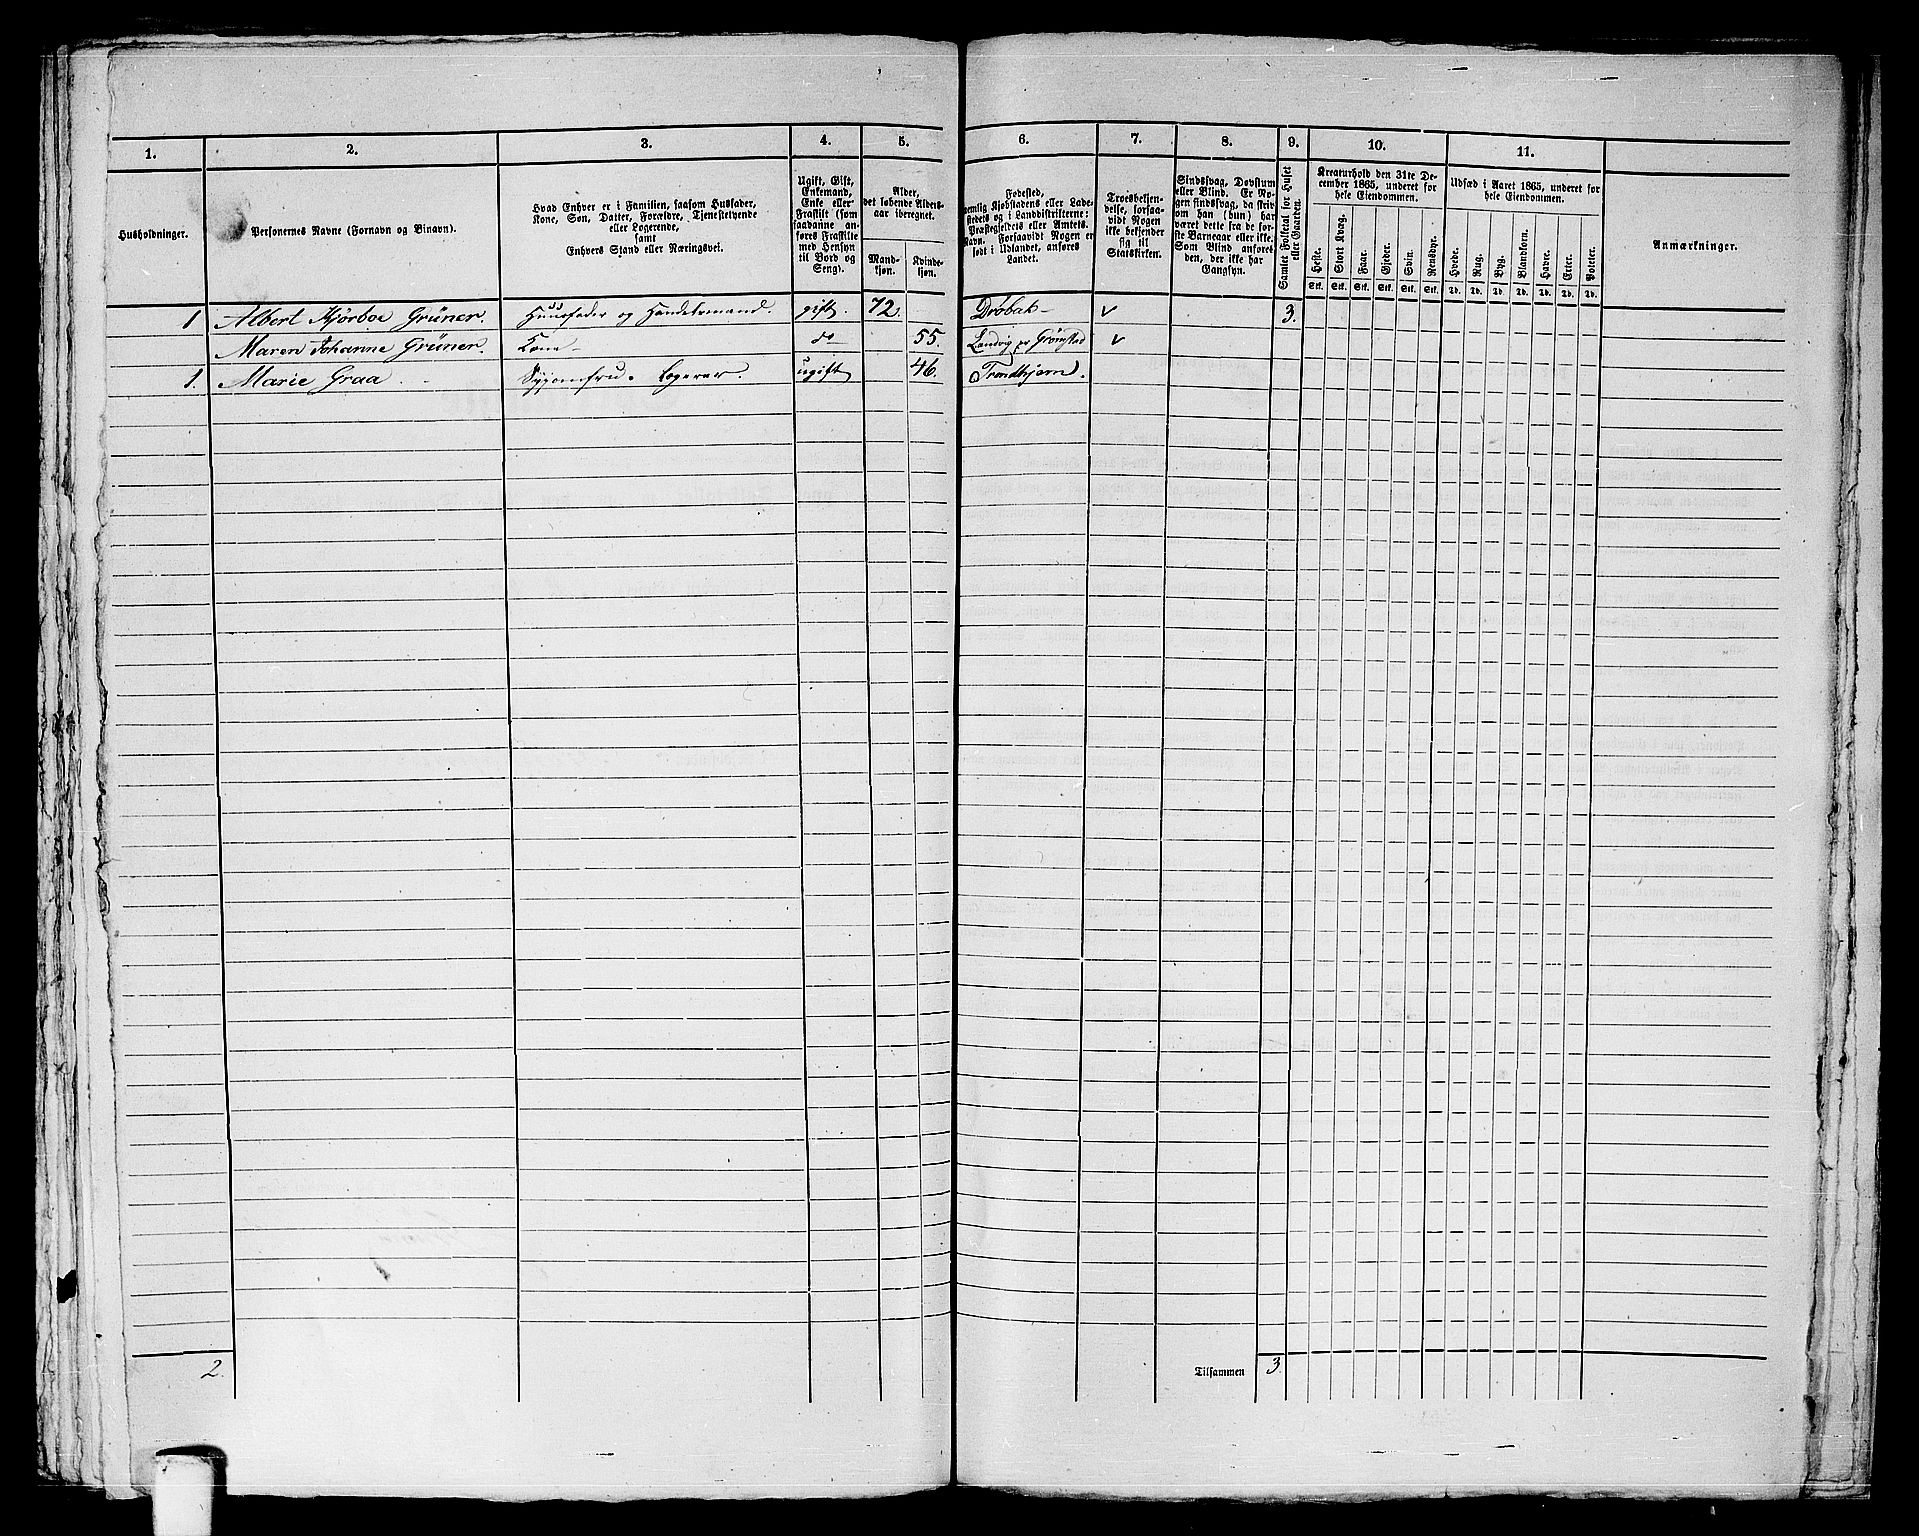 1.
2.
3.
4.
5.
6.
7.
8.
9.
10.
11.
Husholdninger.
Personernes Navne (Fornavn og Binavn).
Hvad Enhver er i Familien, saasom Husfader,
Kone, Søn, Datter, Forældre, Tjenestetyende
eller Logerende,
samt
Enhvers Stand eller Næringsvei.
Ugift, Gift,
Enkemand,
Enke eller
Fraskilt (som
saadanne an-
føres Fraskilte
med Hensyn
til Bord og
Seng).
Alder,
det løbende Alders-
aar iberegnet.
Mand-
kjøn.
Kvinde-
kjøn.
Fødested,
nemlig Kjøbstadens eller Lade-
stedets og i Landdistrikterne:
Præstegjeldets eller Amtets
Navn. Forsaavidt Nogen er
født i Udlandet, anføres
Landet.
Troesbekjen-
delse, forsaa-
vidt Nogen
ikke bekjender
sig til
Statskirken.
Sindssvag, Døvstum
eller Blind. Er No-
gen sindssvag, da skriv
om han (hun) har
været dette fra de før-
ste Barneaar eller ikke.
Som Blind anføres
den, der ikke har
Gangsyn.
Samlet Folketal for Huset
eller Gaarden.
Kreaturhold den 31te De-
cember 1865, underet for
hele Eiendommen.
Heste.
Stort Kvæg.
Faar.
Gjeder.
Svin.
Rensdyr.
Stk. Stk. Stk. Stk. Stk. Stk.
Udsæd i Aaret 1865, underet for
hele Eiendommen.
Hvede.
Rug.
Byg.
Blandkorn.
Havre.
Erter.
Poteter.
Td. Td. Td. Td. Td. Td. Td.
Anmærkninger.
1 Albert Kjørboe Grüner. Huusfader og Handelsmand. gift. 72. Drøbak 3.
Maren Johanne Grüner. Kone do 55. Landvig pr Grømstad
1. Marie Graa. Syjomfru. Logerer. ugift 46. Trondhjem.
2.
Tilsammen 3.